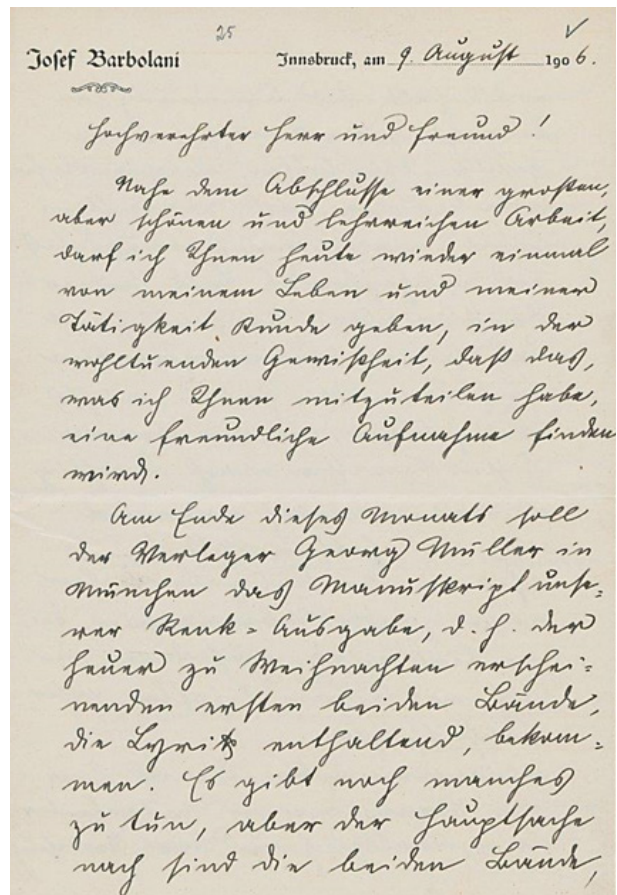 25
Josef Barbolani
Innsbruck, am 9. August 1906.
Hochverehrter Herr und Freund!
Nahe dem Abschlusse einer großen,
aber schönen und lehrreichen Arbeit,
darf ich Ihnen heute wieder einmal
von meinem Leben und meiner
Tätigkeit Kunde geben, in der
wohltuenden Gewißheit, daß das,
was ich Ihnen mitzuteilen habe,
eine freundliche Aufnahme finden
wird.
Am Ende dieses Monats soll
der Verleger Georg Müller in
München das Manuskript unse-
rer Renk-Ausgabe, d. h. der
heuer zu Weihnachten erschei-
nenden ersten beiden Bände,
die Lyrik enthaltend, bekom-
men. Es gibt noch manches
zu tun, aber der Hauptsache
nach sind die beiden Bände,